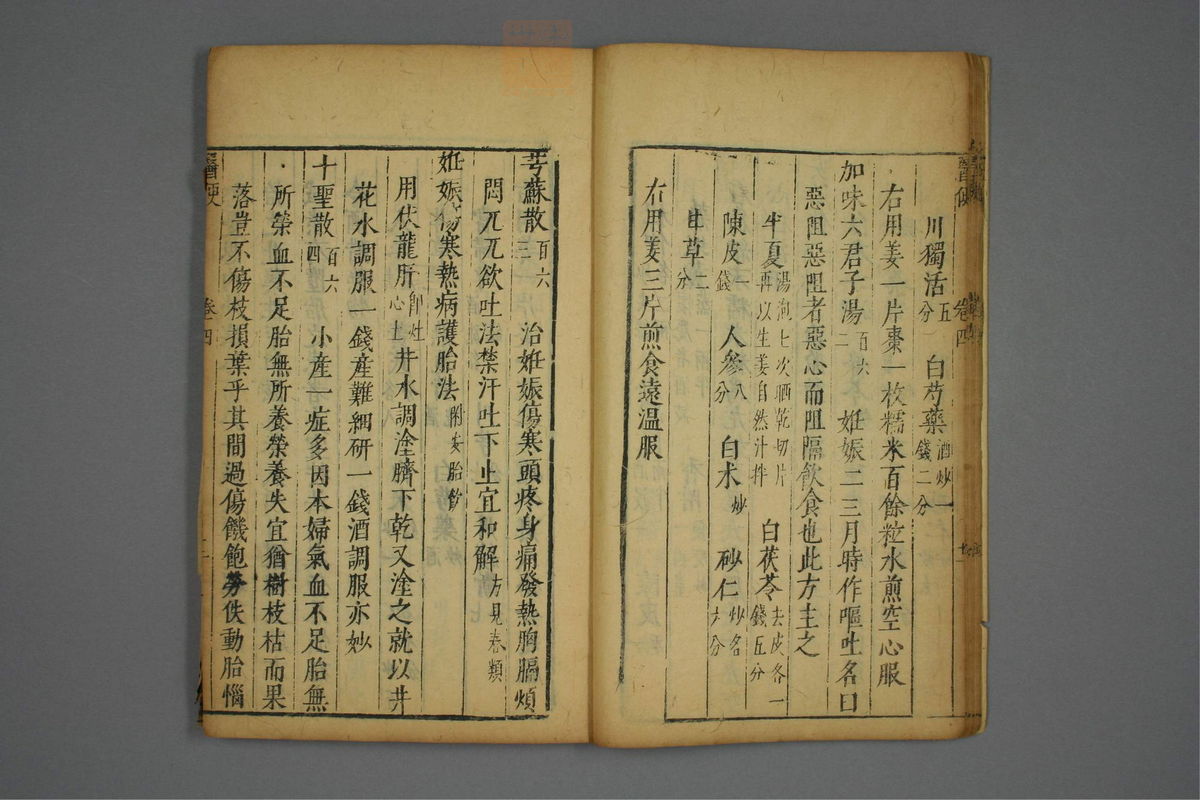 醫便 卷四
川獨活五分 白芍藥酒炒一錢二分
右用姜一片棗一枚糯米百餘粒水煎空心服
加味六君子湯百六二 妊娠二三月時作嘔吐名曰
惡阻惡阻者惡心而阻隔飲食也此方主之
半夏湯泡七次晒乾切片再以生姜自然汁拌 白茯苓去皮各一錢五分
陳皮一錢 人參八分 白术炒 砂仁炒各六分
甘草二分
右用姜三片煎食遠溫服
芎蘇散百六三 治妊娠傷寒頭疼身痛發熱胸膈煩
悶兀兀欲吐法禁汗吐下止宜和解方見春類
妊娠傷寒熱病護胎法附安胎飲
用伏龍肝即灶心土井水調塗臍下乾又塗之就以井
花水調服一錢產難細研一錢酒調服亦妙
十聖散百六四 小產一症多因本婦氣血不足胎無
所榮血不足胎無所養榮養失宜猶樹枝枯而果
落豈不傷枝損葉乎其間過傷饑飽勞佚動胎惱
醫便 卷四